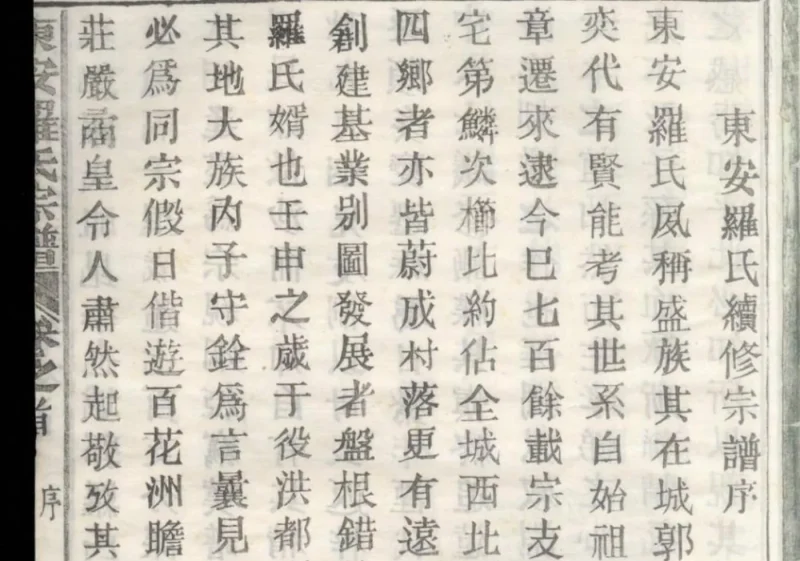 東安羅氏續修宗譜序
東安羅氏夙稱盛族其在城郭
奕代有賢能考其世系自始祖
章遷來逮今已七百餘載宗支
宅第鱗次櫛比約佔全城西北
四鄉者亦皆蔚成村落更有遠
創建基業别圖發展者盤根錯
羅氏婿也壬申之歲于役洪都
其地大族丙子守銓爲言曩見
必爲同宗假日偕遊百花洲瞻
莊嚴矞皇令人肅然起敬攷其
東安羅氏宗譜 卷之首 序